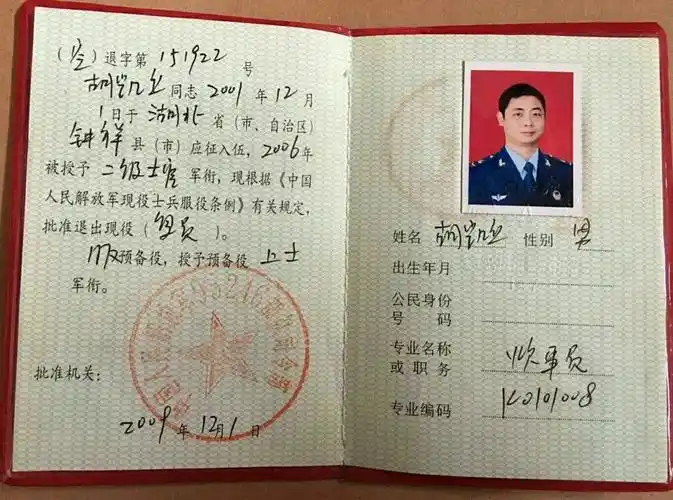 （空）退字第 151922 号
胡岂凡 同志 2001 年 12 月
1 日于 湖北 省（市、自治区）
钟祥 县（市）应征入伍，2006年
被授予 二级士官 军衔，现根据《中国
人民解放军现役士兵服役条例》有关规定，
批准退出现役（复员）。
服预备役，授予预备役 上士
军衔。
批准机关：
2009 年 12月1 日
姓名 性别 男
出生年月
公民身份
号 码
专业名称
或 职 务
专业编码